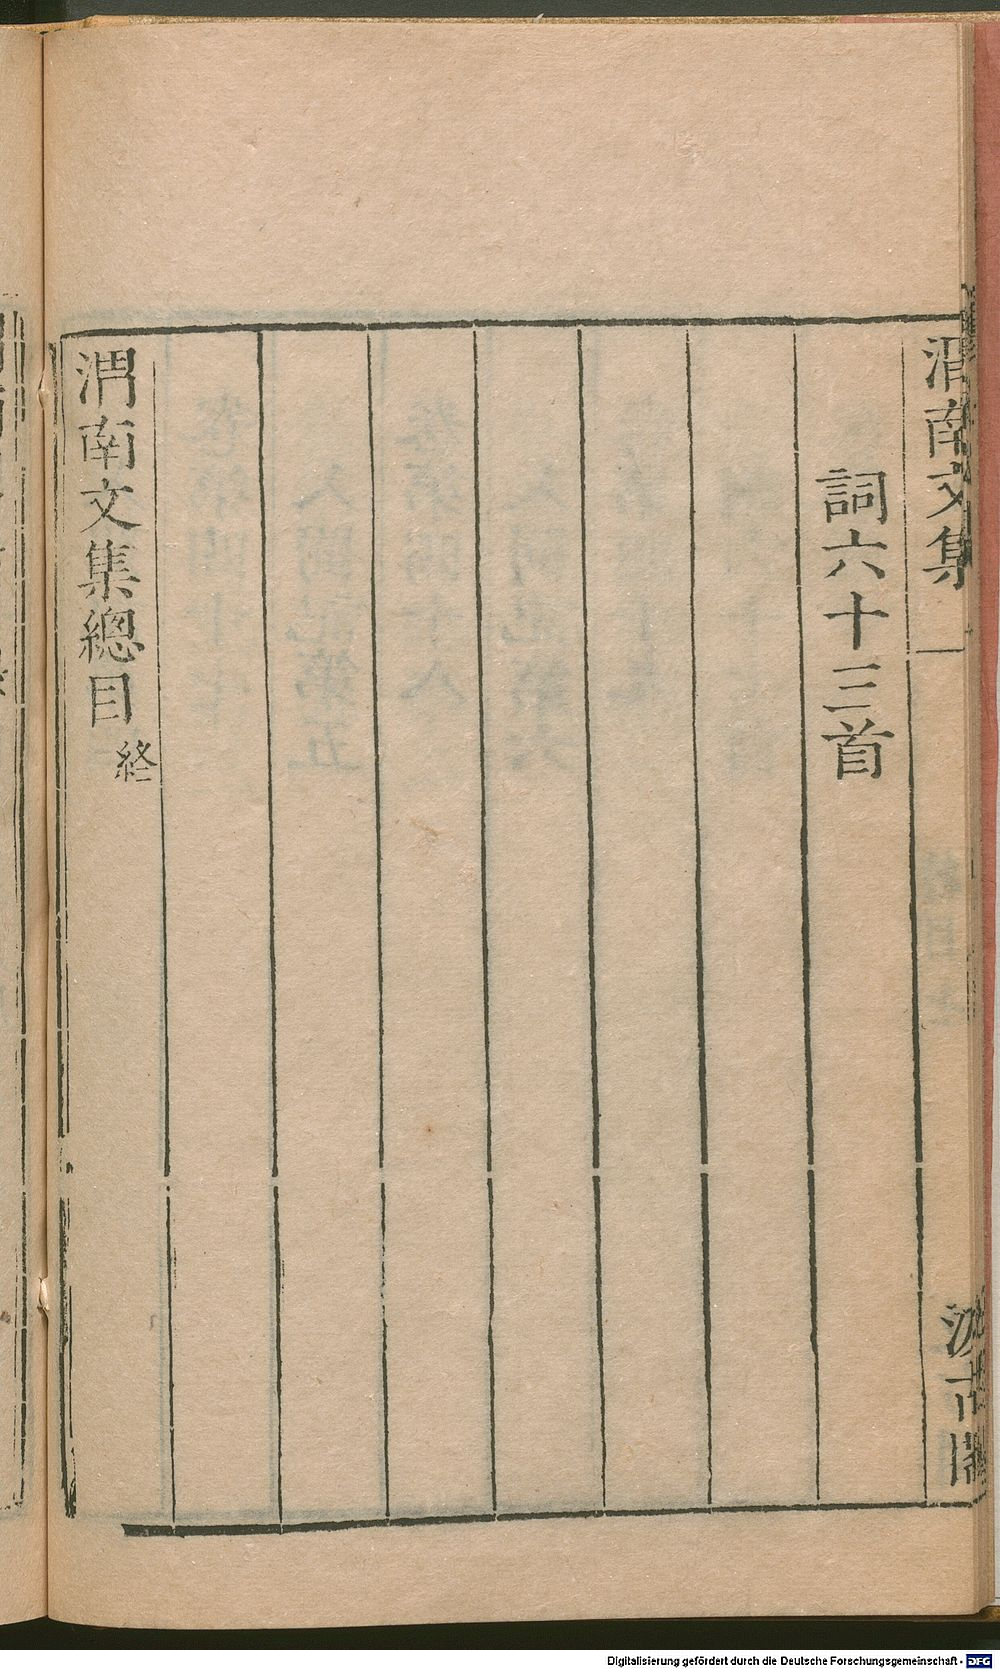 渭南文集
汲古閣
詞六十三首
渭南文集總目終
Digitalisierung gefördert durch die Deutsche Forschungsgemeinschaft - DFG